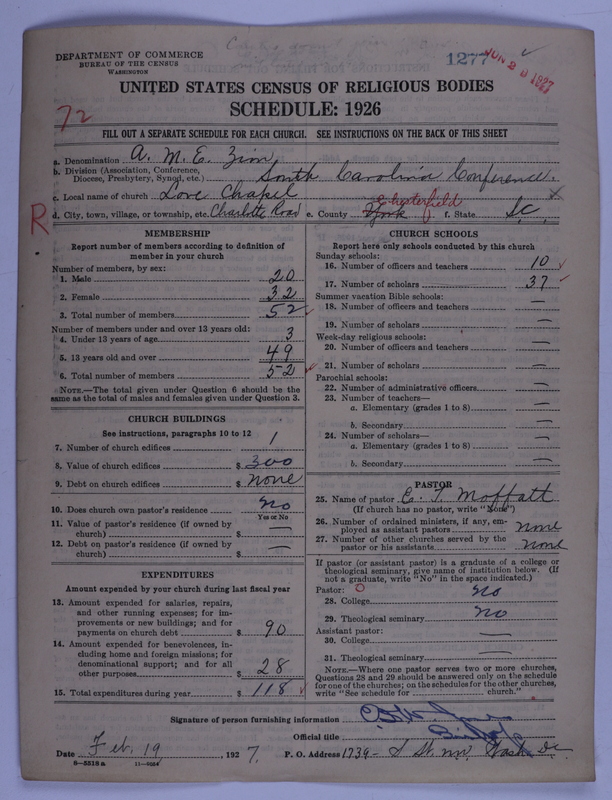 DEPARTMENT OF COMMERCE
BUREAU OF THE CENSUS
WASHINGTON
1277
JUN 20 1927
UNITED STATES CENSUS OF RELIGIOUS BODIES
SCHEDULE: 1926
72
FILL OUT A SEPARATE SCHEDULE FOR EACH CHURCH. SEE INSTRUCTIONS ON THE BACK OF THIS SHEET
a. Denomination A. M. E. Zion
b. Division (Association, Conference, Diocese, Presbytery, Synod, etc.) South Carolina Conference.
c. Local name of church Love Chapel
R
d. City, town, village, or township, etc. Charlotte Road e. County York Chesterfield f. State S.C.
MEMBERSHIP
Report number of members according to definition of
member in your church
Number of members, by sex:
1. Male 20
2. Female 32
3. Total number of members 52
Number of members under and over 13 years old:
4. Under 13 years of age 3
5. 13 years old and over 49
6. Total number of members 52
NOTE.—The total given under Question 6 should be the
same as the total of males and females given under Question 3.
CHURCH BUILDINGS
See instructions, paragraphs 10 to 12
7. Number of church edifices 1
8. Value of church edifices $ 300
9. Debt on church edifices $ none
10. Does church own pastor's residence No
Yes or No
11. Value of pastor's residence (if owned by
church) $ —
12. Debt on pastor's residence (if owned by
church) $ —
EXPENDITURES
Amount expended by your church during last fiscal year
13. Amount expended for salaries, repairs,
and other running expenses; for im-
provements or new buildings; and for
payments on church debt $ 90
14. Amount expended for benevolences, in-
cluding home and foreign missions; for
denominational support; and for all
other purposes $ 28
15. Total expenditures during year $ 118
CHURCH SCHOOLS
Report here only schools conducted by this church
Sunday schools:
16. Number of officers and teachers 10
17. Number of scholars 37
Summer vacation Bible schools:
18. Number of officers and teachers —
19. Number of scholars —
Week-day religious schools:
20. Number of officers and teachers —
21. Number of scholars —
Parochial schools:
22. Number of administrative officers —
23. Number of teachers—
a. Elementary (grades 1 to 8) —
b. Secondary —
24. Number of scholars—
a. Elementary (grades 1 to 8) —
b. Secondary —
PASTOR
25. Name of pastor E. T. Moffatt
(If church has no pastor, write "None")
26. Number of ordained ministers, if any, em-
ployed as assistant pastors none
27. Number of other churches served by the
pastor or his assistants none
If pastor (or assistant pastor) is a graduate of a college or
theological seminary, give name of institution below. (If
not a graduate, write "No" in the space indicated.)
Pastor:
28. College No
29. Theological seminary No
Assistant pastor:
30. College —
31. Theological seminary —
NOTE.—Where one pastor serves two or more churches,
Questions 28 and 29 should be answered only on the schedule
for one of the churches; on the schedules for the other churches,
write "See schedule for church."
Signature of person furnishing information
Official title Bishop
Date Feb. 19, 1927. P. O. Address 1739- S St. nw. Wash. DC
8-3518 a 11-9064